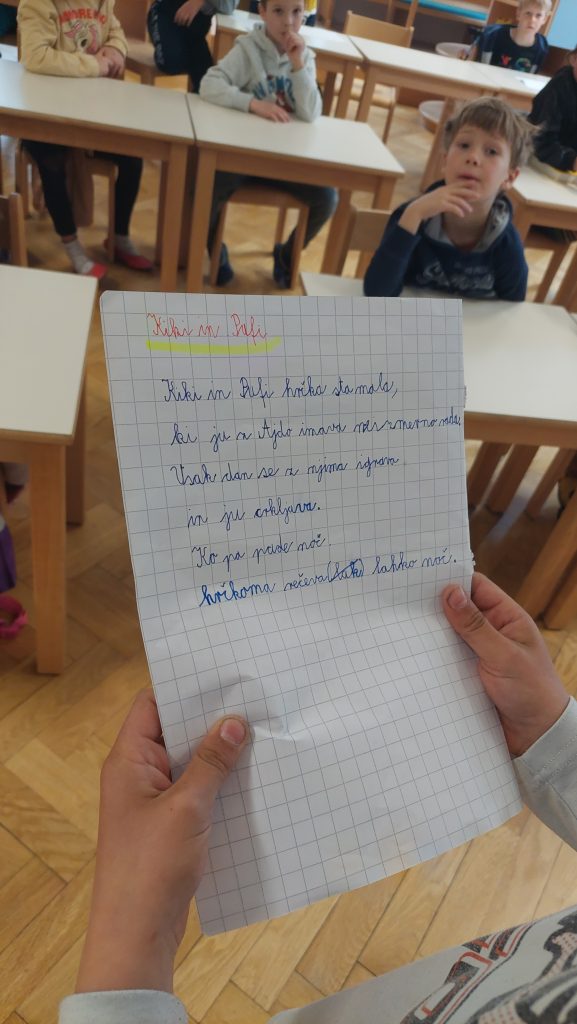 Kiki in Pufi
Kiki in Pufi hrčka sta mala,
ki ju z Ajdo imava neizmerno rada.
Vsak dan se z njima igrava
in ju crkljava.
Ko pa pade noč
hrčkoma rečeva (lah) lahko noč.